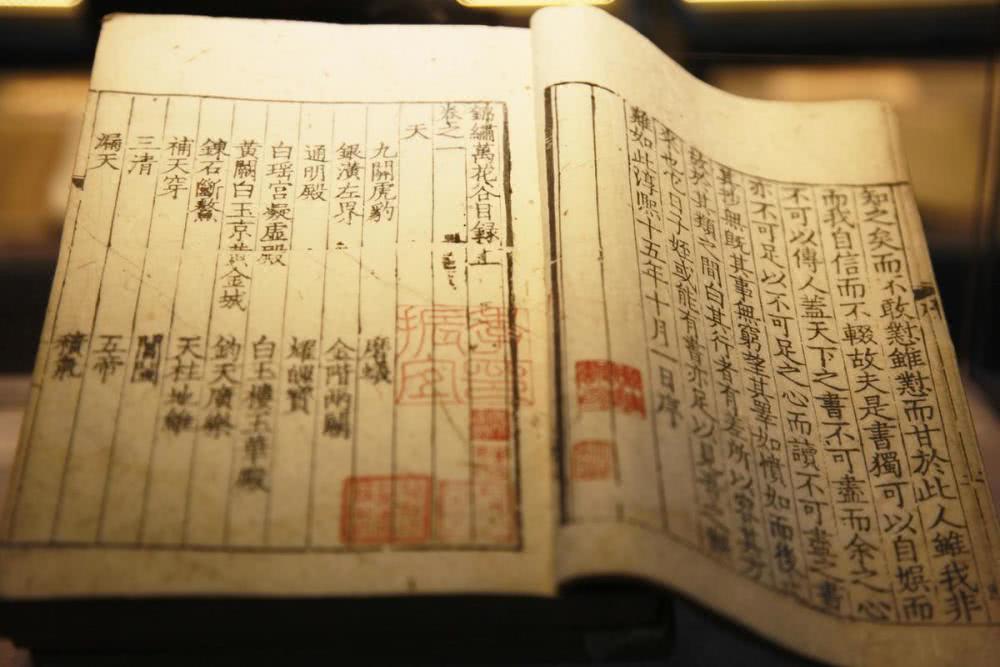 知之矣而不敢懟雖懟而甘於此人雖我非
而我自信而不輟故夫是書獨可以自娛而
不可以傳人蓋天下之書不可盡而余之心
亦不可足以不可足之心而讀不可盡之書
其抄無旣其事無窮望其畢如償如而後
於其類之間白其行者有差所以容其方
來也它日子姪或能有書亦足以見吾之艱
難如此淳熙十五年十月一日序
錦繡萬花谷目錄上
卷之一
天
九關虎豹 磨蟻
銀潢左界 金階兩闢
通明殿 耀魄寶
白瑤宮凝虛殿 白玉樓玉華殿
黃闕白玉京黃金城 鈞天廣樂
鍊石斷鰲 天柱地維
補天穿 閶闔
三清 五帝
漏天 積氣